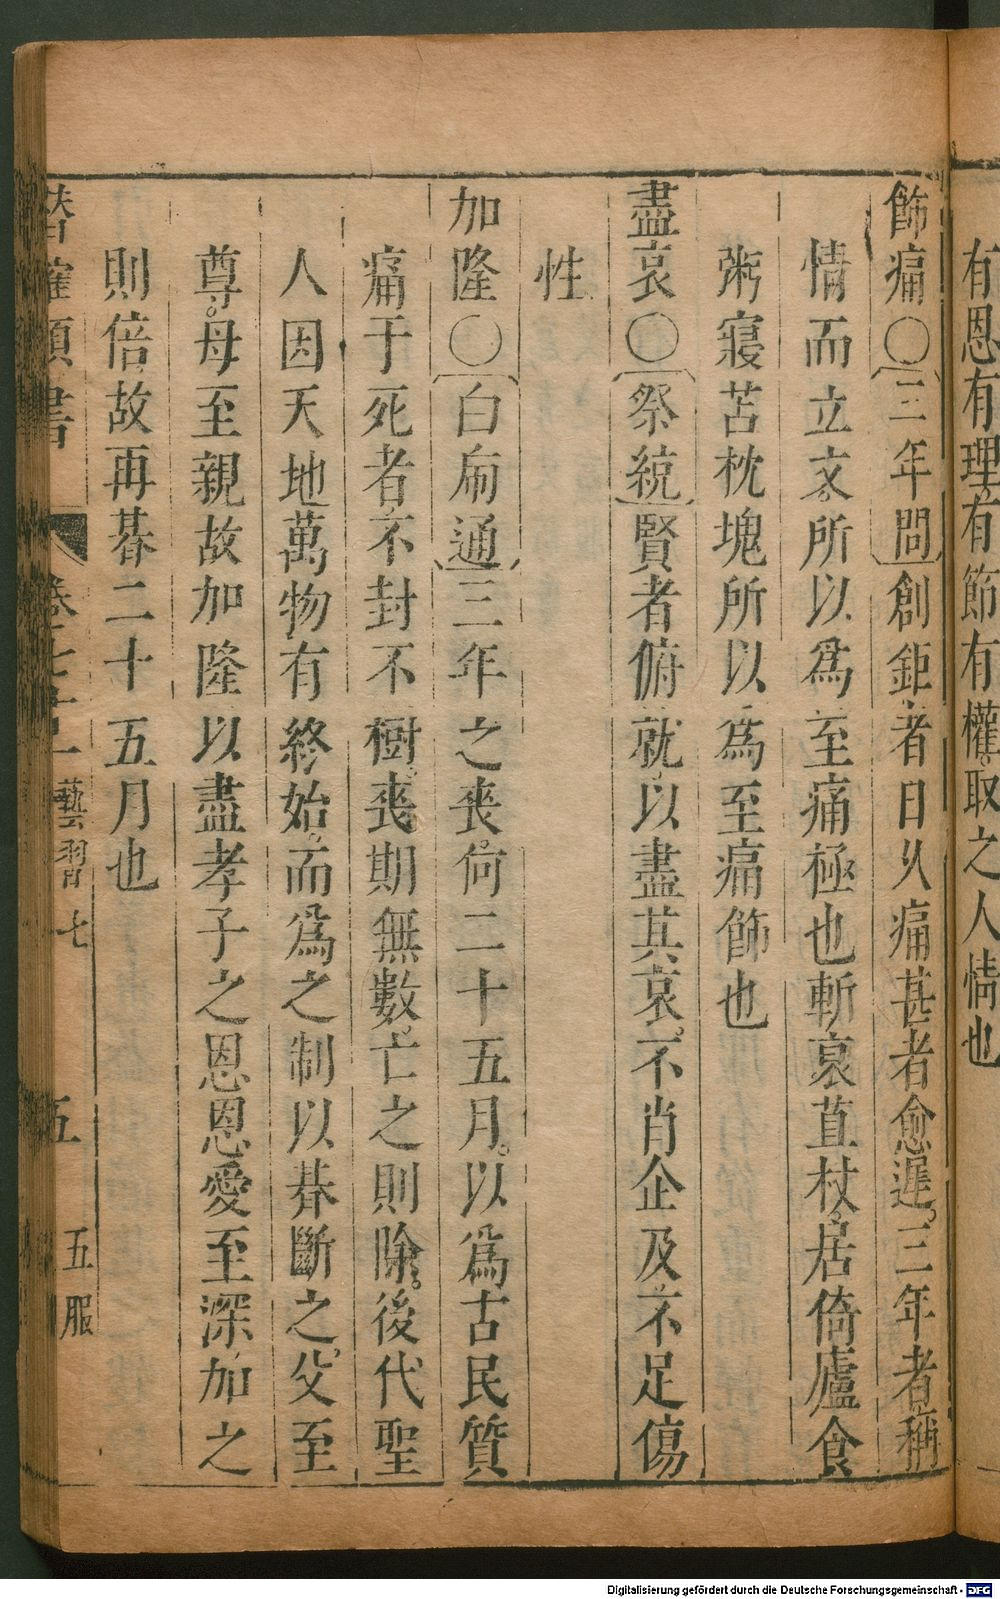 有恩有理有節有權取之人情也
飾痛〇三年問創鉅者日久痛甚者愈遲三年者稱
情而立文所以爲至痛極也斬衰苴杖居倚廬食
粥寢苫枕塊所以為至痛飾也
盡哀〇祭統賢者俯就以盡其哀不肖企及不足傷
性
加隆〇白虎通三年之喪何二十五月以爲古民質
痛于死者不封不樹喪期無數亡之則除後代聖
人因天地萬物有終始而爲之制以朞斷之父至
尊母至親故加隆以盡孝子之恩恩愛至深加之
則倍故再朞二十五月也
類書 藝習七 五 五服
Digitalisierung gefördert durch die Deutsche Forschungsgemeinschaft - DFG